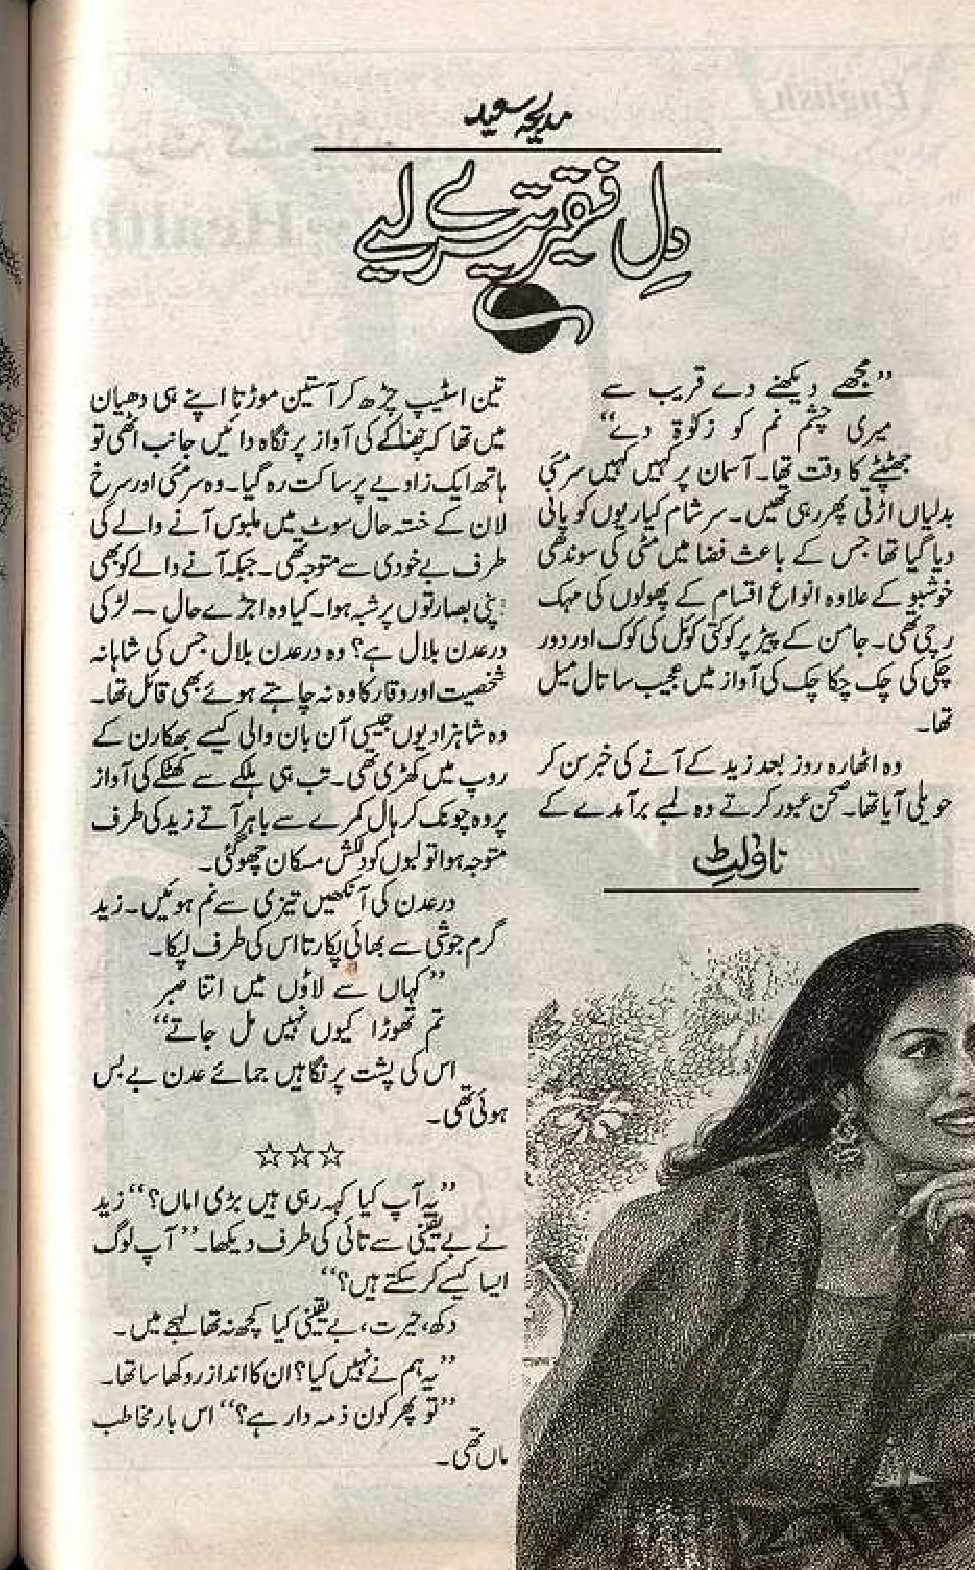 مدیحہ سعید
دل فقیر تیرے لیے
”مجھے دیکھنے دے قریب سے
میری چشم نم کو زکوٰۃ دے“
جھٹپٹے کا وقت تھا۔ آسمان پر کہیں کہیں سرمئی
بدلیاں اڑتی پھر رہی تھیں۔ سر شام کیاریوں کو پانی
دیا گیا تھا جس کے باعث فضا میں مٹی کی سوندھی
خوشبو کے علاوہ انواع اقسام کے پھولوں کی مہک
رچی تھی۔ جامن کے پیڑ پر کوکتی کوئل کی کوک اور دور
چکی کی چک چکا چک کی آواز میں عجیب سا تال میل
تھا۔
وہ اٹھارہ روز بعد زید کے آنے کی خبر سن کر
حویلی آیا تھا۔ صحن عبور کرتے وہ لمبے برآمدے کے
ناولٹ
تین اسٹیپ چڑھ کر آستین موڑتا اپنے ہی دھیان
میں تھا کہ چھناکے کی آواز پر نگاہ دائیں جانب اٹھی تو
ہاتھ ایک زاویے پر ساکت رہ گیا۔ وہ سرمئی اور سرخ
لان کے خستہ حال سوٹ میں ملبوس آنے والے کی
طرف بے خودی سے متوجہ تھی۔ جبکہ آنے والے کو بھی
اپنی بصارتوں پر شبہ ہوا۔ کیا وہ اجڑے حال — لڑکی
درعدن بلال ہے؟ وہ درعدن بلال جس کی شاہانہ
شخصیت اور وقار کا وہ نہ چاہتے ہوئے بھی قائل تھا۔
وہ شاہزادیوں جیسی آن بان والی کیسے بھکارن کے
روپ میں کھڑی تھی۔ تب ہی ہلکے سے کھٹکے کی آواز
پر وہ چونک کر ہال کمرے سے باہر آتے زید کی طرف
متوجہ ہوا تو لبوں کو دلکش مسکان چھو گئی۔
درعدن کی آنکھیں تیزی سے نم ہوئیں۔ زید
گرم جوشی سے بھائی پکارتا اس کی طرف لپکا۔
”کہاں سے لاؤں میں اتنا صبر
تم تھوڑا کیوں نہیں مل جاتے“
اس کی پشت پر نگاہیں جمائے عدن بے بس
ہوئی تھی۔
☆☆☆
”یہ آپ کیا کہہ رہی ہیں بڑی اماں؟“ زید
نے بے یقینی سے تائی کی طرف دیکھا۔ ”آپ لوگ
ایسا کیسے کر سکتے ہیں؟“
دکھ، حیرت، بے یقینی کیا کچھ نہ تھا لہجے میں۔
”یہ ہم نے نہیں کیا؟ ان کا انداز روکھا سا تھا۔
”تو پھر کون ذمہ دار ہے؟“ اس بار مخاطب
ماں تھی۔